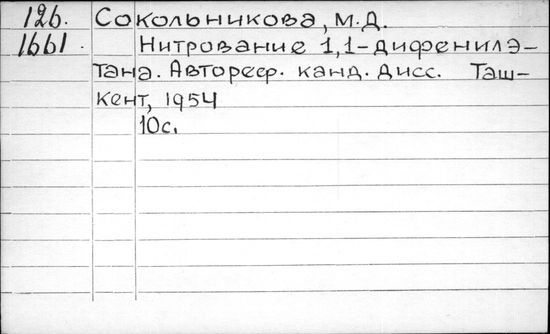 126. Сокольникова, М.Д.
1661. Нитрование 1,1-дифенилэ-
тана. Автореф. канд. дисс. Таш-
кент, 1954
10с.